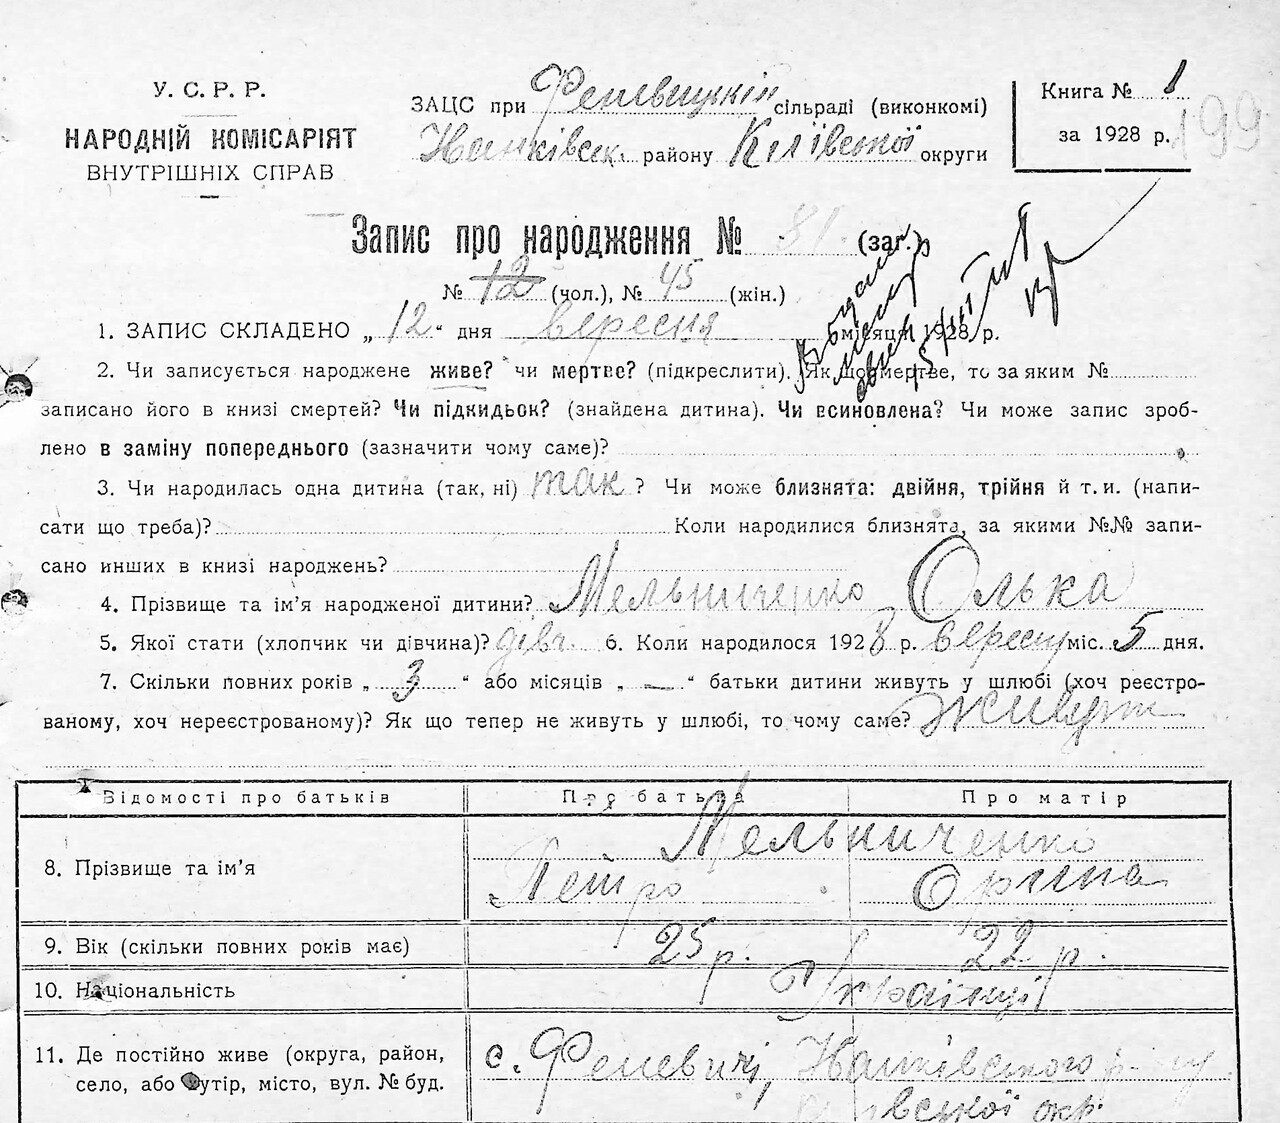 У. С. Р. Р.
НАРОДНІЙ КОМІСАРІЯТ
ВНУТРІШНІХ СПРАВ
ЗАЦС при Феневицькій сільраді (виконкомі)
району Київської округи
Книга № 1
за 1928 р.
199
Запис про народження № 81. (заг.)
№ 12 (чол.), № 45 (жін.)
1. ЗАПИС СКЛАДЕНО „ 12 “ дня вересня місяця 1928 р.
2. Чи записується народжене живе? чи мертве? (підкреслити). Як що мертве, то за яким №
записано його в книзі смертей? Чи підкидьок? (знайдена дитина). Чи всиновлена? Чи може запис зроб-
лено в заміну попереднього (зазначити чому саме)?
3. Чи народилась одна дитина (так, ні) так ? Чи може близнята: двійня, трійня й т. и. (напи-
сати що треба)? Коли народилися близнята, за якими №№ запи-
сано инших в книзі народжень?
4. Прізвище та ім’я народженої дитини? Мельниченко Олька
5. Якої стати (хлопчик чи дівчина)? дівч. 6. Коли народилося 1928 р. вересня міс. 5 дня.
7. Скільки повних років „ 3 “ або місяців „ — “ батьки дитини живуть у шлюбі (хоч реєстро-
ваному, хоч нереєстрованому)? Як що тепер не живуть у шлюбі, то чому саме? живуть
Відомості про батьків Про батька Про матір
8. Прізвище та ім’я Мельниченко
Петро Орина
9. Вік (скільки повних років має) 25 р. 22 р.
10. Національність Українці
11. Де постійно живе (округа, район,
село, або хутір, місто, вул. № буд.
с. Феневичі,
окр.